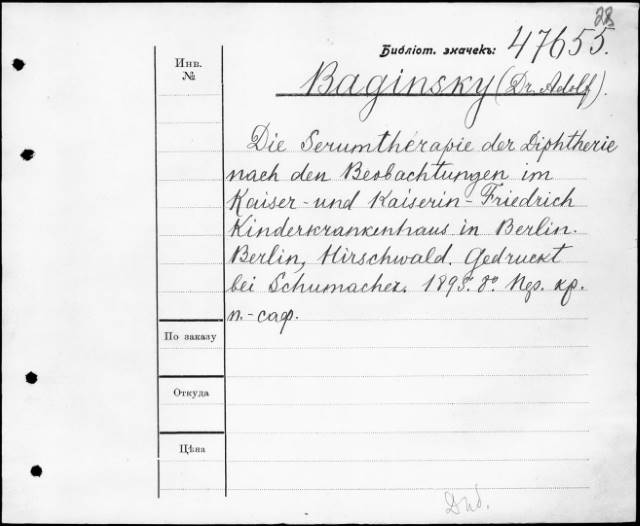 28
Библіот. значекъ: 47655.
Инв.
№
Baginsky (Dr. Adolf).
Die Serumthérapie der Diphtherie
nach den Beobachtungen im
Kaiser- und Kaiserin- Friedrich
Kinderkrankenhaus in Berlin.
Berlin, Hirschwald. Gedruckt
bei Schumacher. 1895. 8º.
п.-саф.
По заказу
Откуда
Цѣна